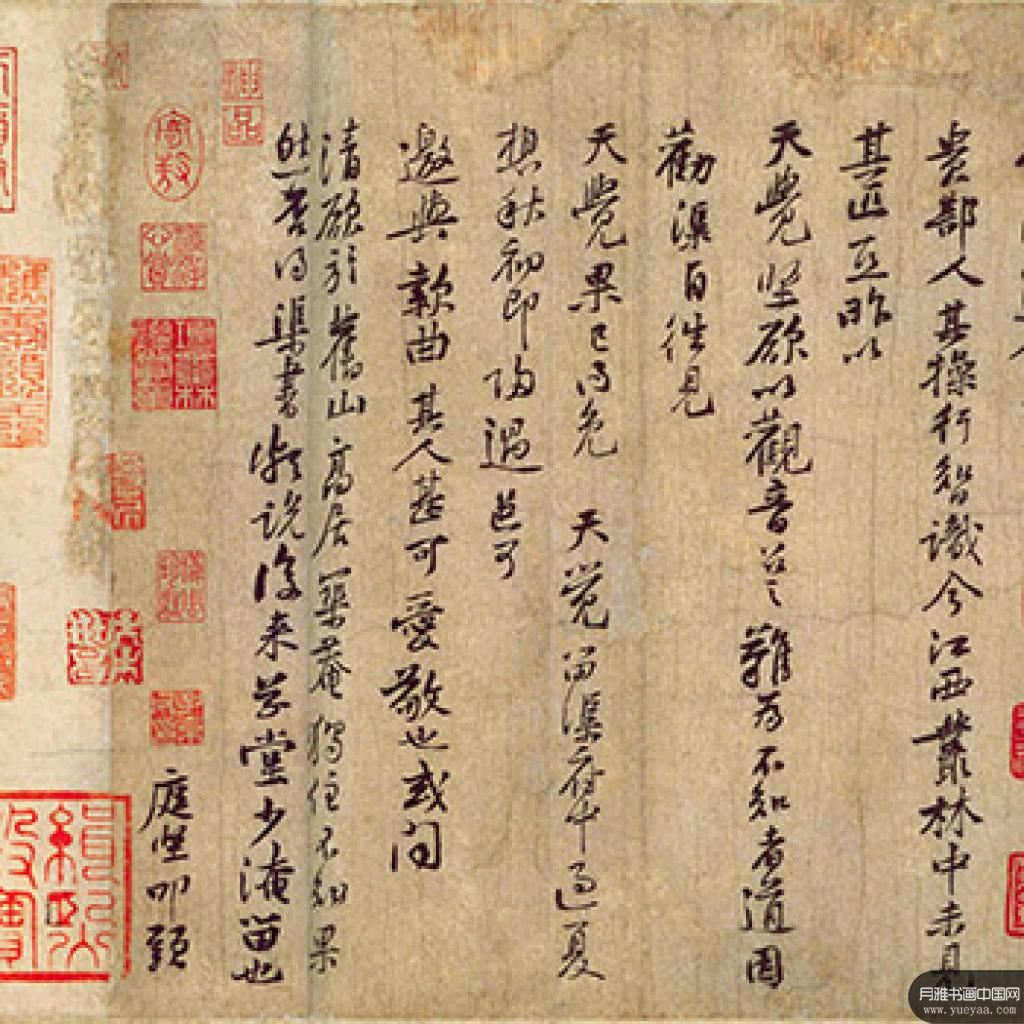 貴部人其操行智識今江西叢林中未見
其匹亞昨以
天覺堅欲以觀音召之難為不知者道因
勸渠自往見
天覺果已得免 天覺留渠府中過夏
想秋初即歸過邑可
邀與款曲其人甚可愛敬也或聞
清欲於舊山高居築菴獨住不知果
然否得渠書頻說後來草堂少淹留也
庭堅叩頭
月雅书画中国网
www.yueyaa.com